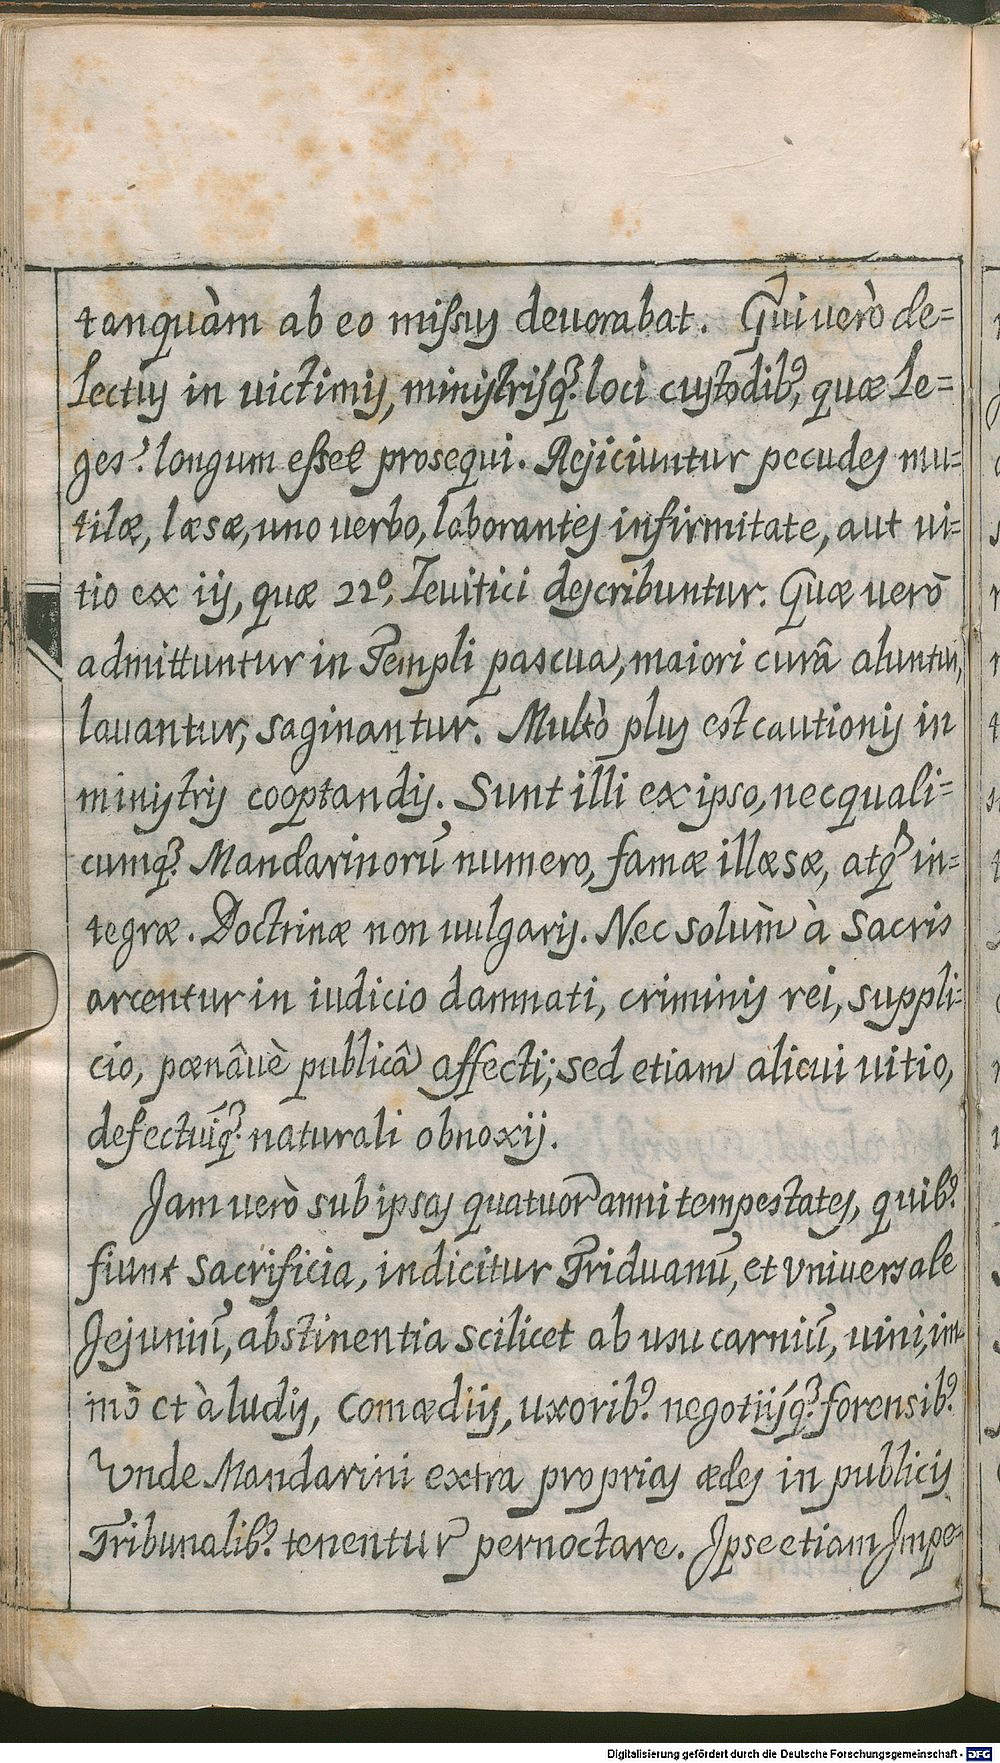 tanquàm ab eo missus deuorabat. Qui uerò de=
lectus in uictimis, ministrisq́ꝫ loci custodibꝰ, quæ Le=
ges? longum esset prosequi. Rejiciuntur pecudes mu=
tilæ, læsæ, uno uerbo, laborantes infirmitate, aut ui=
tio ex iis, quæ 22º. Leuitici describuntur. Quæ uerò
admittuntur in Templi pascua, maiori curâ aluntur,
lauantur, saginantur. Multò plus est cautionis in
ministris cooptandis. Sunt illi ex ipso, nec quali=
cumqꝫ Mandarinorũ numero, famæ illæsæ, atqꝫ in=
tegræ. Doctrinæ non uulgaris. Nec solùm à Sacris
arcentur in iudicio damnati, criminis rei, suppli=
cio, pœnâuè publicâ affecti; sed etiam alicui uitio,
defectuiq́ꝫ naturali obnoxij.
Jam uerò sub ipsas quatuor anni tempestates, quibꝰ
fiunt Sacrificia, indicitur Triduanũ, et vniuersale
Jejuniũ, abstinentia scilicet ab usu carniũ, uini, im=
mò et à ludis, Comædiis, uxoribꝰ negotiisq́ꝫ forensibꝰ
Vnde Mandarini extra proprias ædes in publicis
Tribunalibꝰ tenentur pernoctare. Ipse etiam Impe=
Digitalisierung gefördert durch die Deutsche Forschungsgemeinschaft - DFG